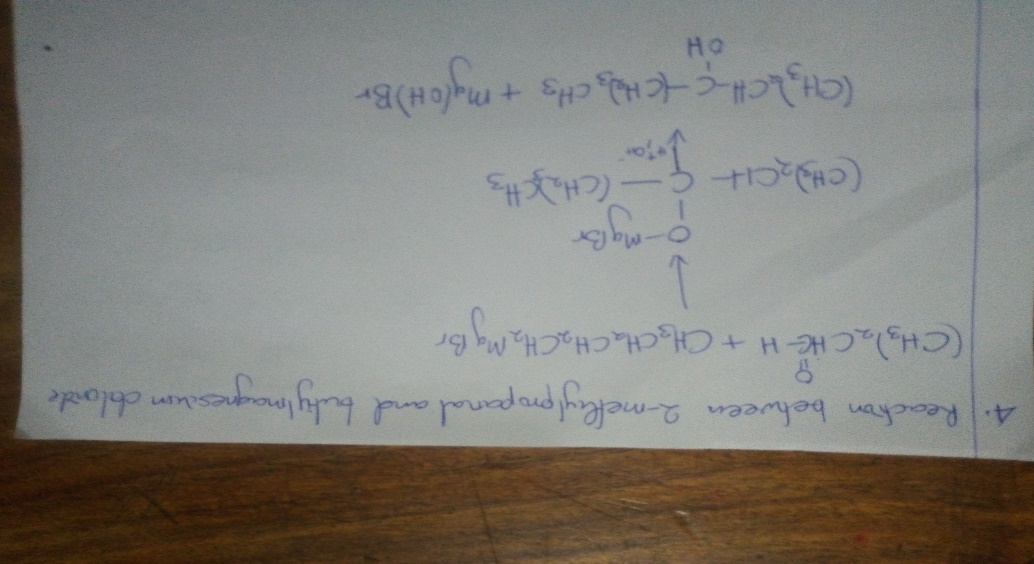 4. Reaction between 2-methylpropanal and butylmagnesium chloride
O
(CH3)2CHC-H + CH3CH2CH2CH2MgBr
O-MgBr
(CH3)2CH-C-(CH2)3CH3
(CH3)2CH-C-(CH2)3CH3 + Mg(OH)Br
OH